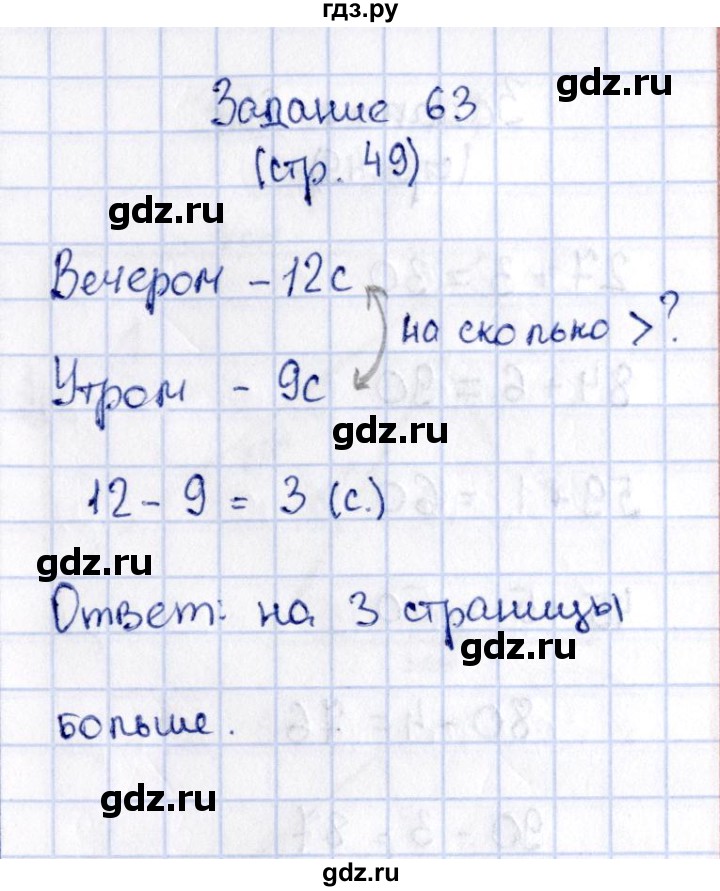 гдз.ру
gdz.ru
Задание 63
(стр. 49)
gdz.ru
Вечером - 12с
на сколько >?
Утром - 9с
gdz.ru
12 - 9 = 3 (с.)
gdz.ru
Ответ: на 3 страницы
gdz.ru
больше.
gdz.ru
gdz.ru